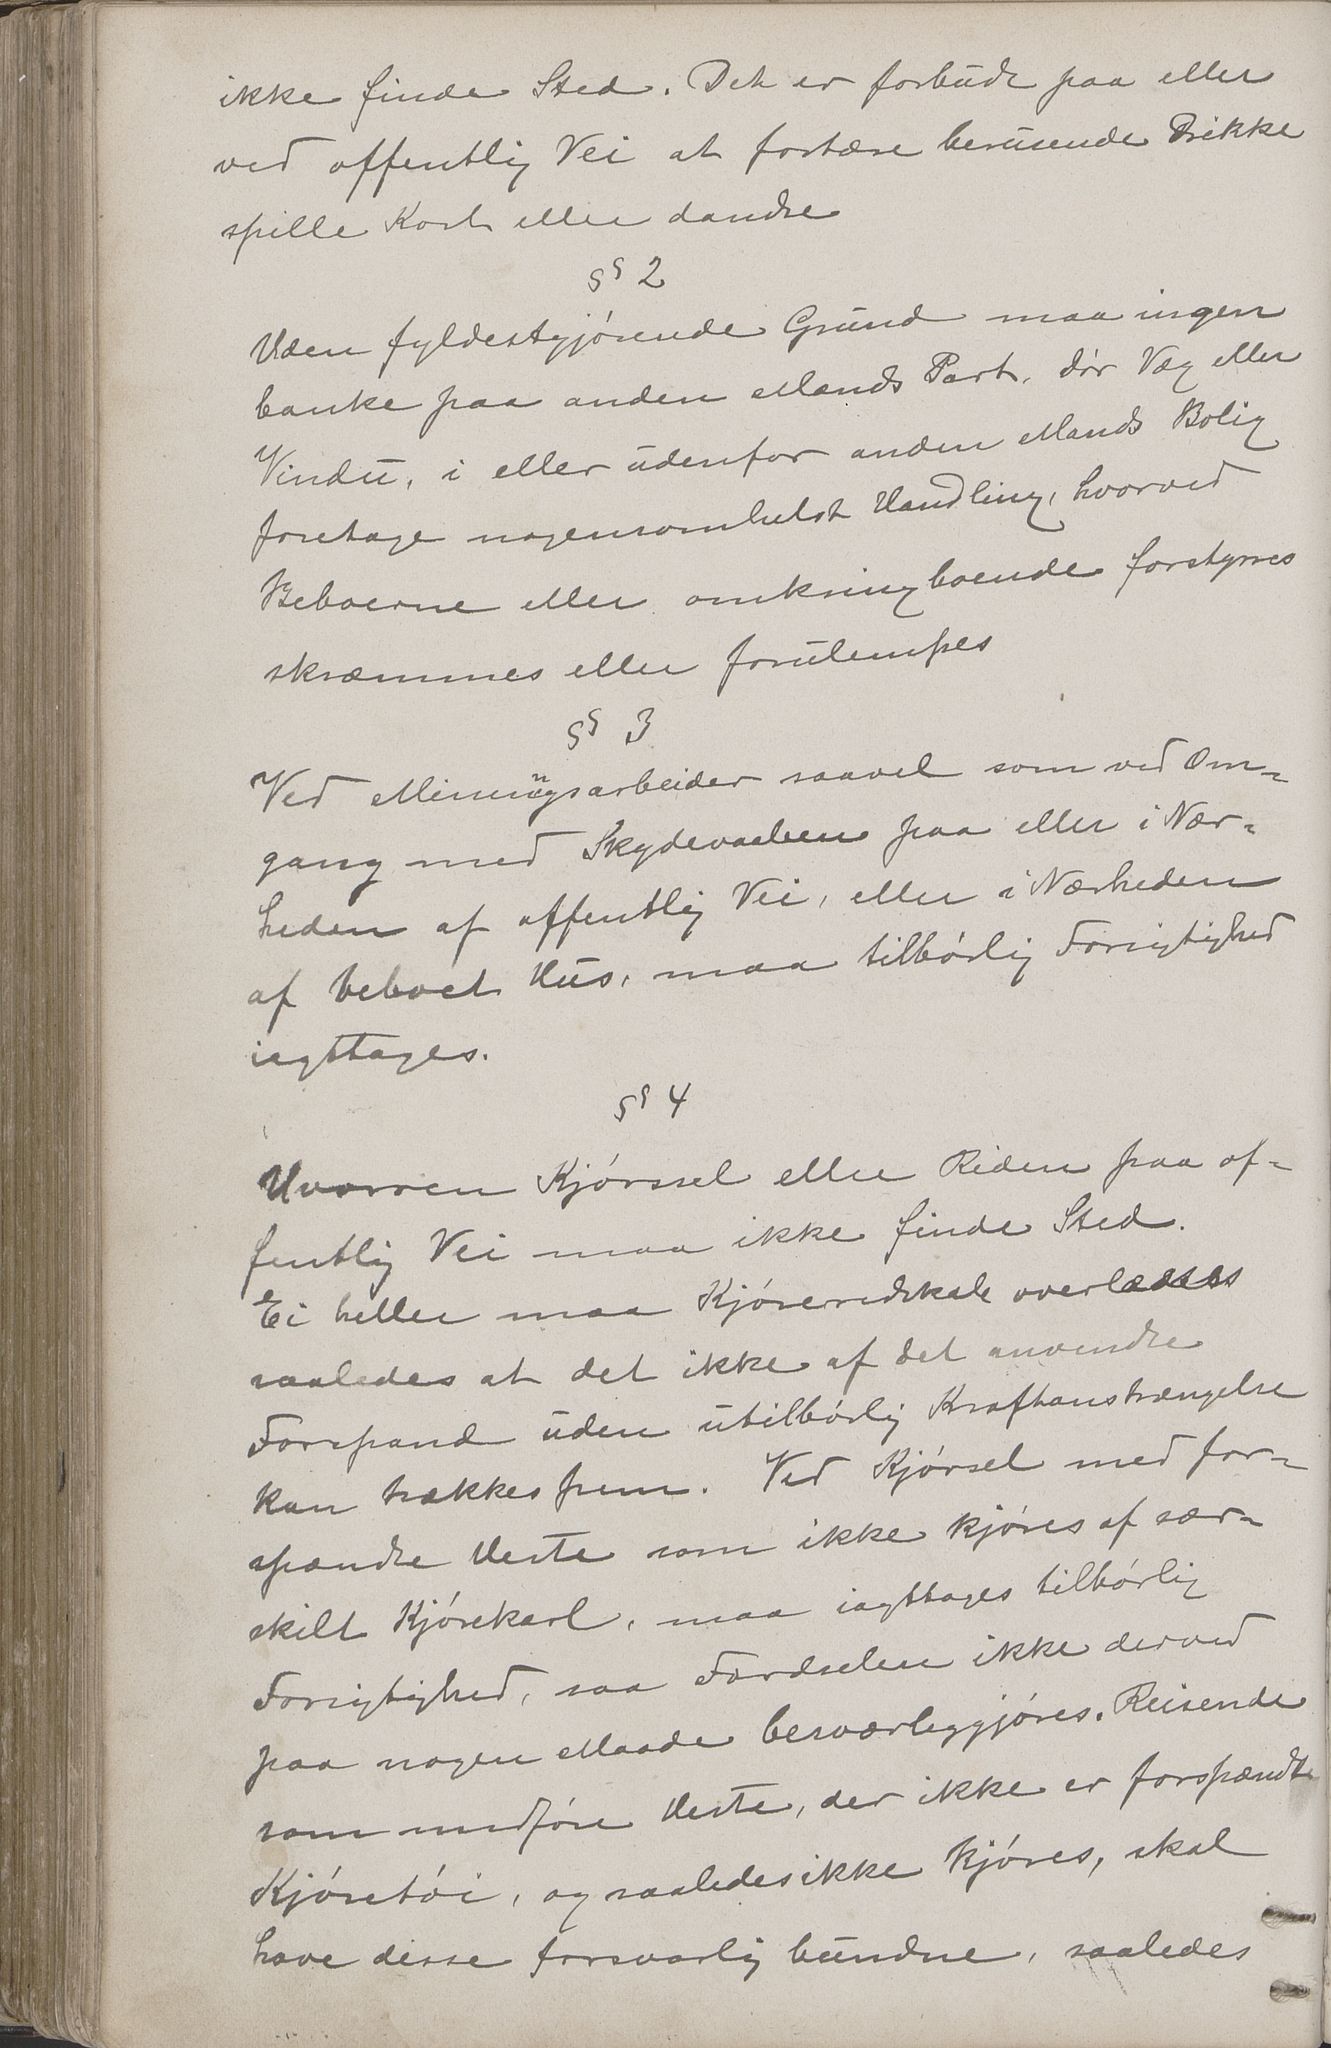 ikke finde Sted. Det er forbudt paa eller
ved offentlig Vei at fortære berusende Drikke
spille Kort eller dandse
§§ 2
Uden fyldestgjørende Grund maa ingen
banke paa anden Mands Port, dør Væg eller
Vindu, i eller udenfor anden Mands Bolig
foretage nogensomhelst Handling, hvorved
Beboerne eller omkringboende forstyrres
skræmmes eller forulempes
§§ 3
Ved Mineringsarbeider saavel som ved Om-
gang med Skydevaaben paa eller i Nær-
heden af offentlig Vei, eller i Nærheden
af beboet Hus, maa tilbørlig Forsigtighed
iagttages.
§§ 4
Uvorren Kjørssel eller Riden paa of-
fentlig Vei maa ikke finde Sted.
Ei heller maa Kjøreredskab overlædses
saaledes at det ikke af det anvendte
Forspand uden utilbørlig Kraftanstrængelse
kan trækkes frem. Ved Kjørsel med for-
spændte Heste som ikke kjøres af sær-
skilt Kjørekarl, maa iagttages tilbørlig
Forsigtighed, saa Færdselen ikke derved
paa nogen Maade besværliggjøres. Reisende
som medføre Heste, der ikke er forspændt
Kjøretøi, og saaledes ikke kjøres, skal
have disse forsvarlig bundne, saaledes